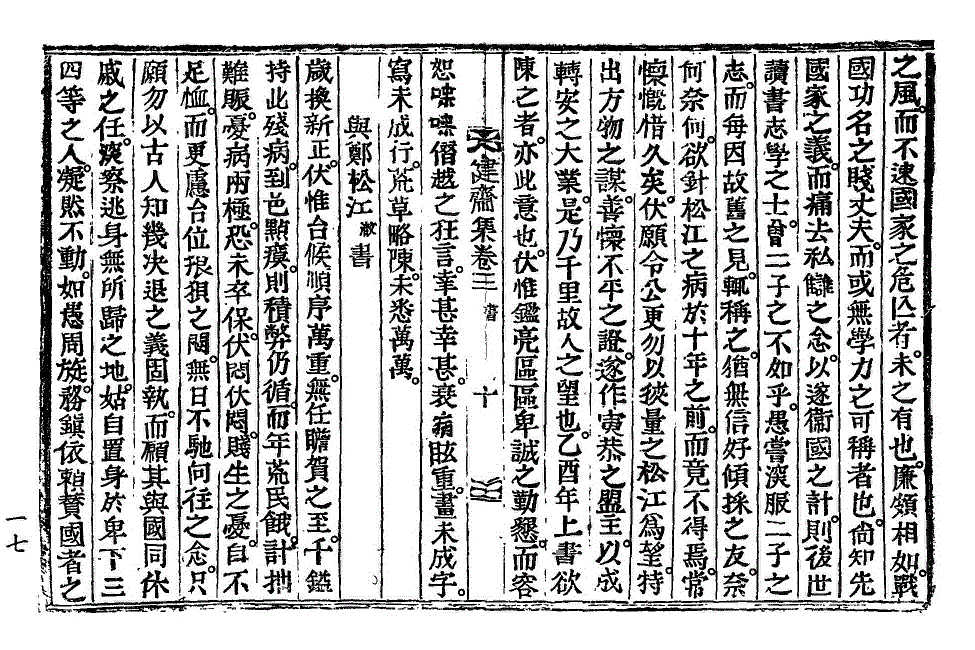 之風。而不速國家之危亾者。未之有也。廉頗相如。戰
國功名之賤丈夫。而或無學力之可稱者也。尙知先
國家之義。而痛去私讎之念。以遂衞國之計。則後世
讀書志學之士。曾二子之不如乎。愚嘗深服二子之
志。而每因故舊之見。輒稱之。猶無信好傾採之友。奈
何奈何。欲針松江之病於十年之前。而竟不得焉。常
懷慨惜久矣。伏願令公更勿以狹量之松江爲望。特
出方物之謀。善懷不平之證。遂作寅恭之盟主。以成
轉安之大業。是乃千里故人之望也。乙酉年上書欲
陳之者。亦此意也。伏惟鑑亮區區卑誠之勤懇。而容
健齋集卷三 書 十
恕㗳㗳僭越之狂言。幸甚幸甚。衰病眩重。畫未成字。
寫未成行。荒草略陳。未悉萬萬。
與鄭松江 澈 書
歲換新正。伏惟台候順序萬重。無任瞻賀之至。千鎰
持此殘病。到邑點瘼。則積弊仍循。而年荒民餓。計拙
難賑。憂病兩極。恐未卒保。伏悶伏悶。賤生之憂。自不
足恤。而更慮台位狼狽之悶。無日不馳向往之念。只
願勿以古人知幾决退之義固執。而顧其與國同休
戚之任。深察逃身無所歸之地。姑自置身於卑下三
四等之人。凝然不動。如愚周旋。務鎭依賴贊國者之
一七